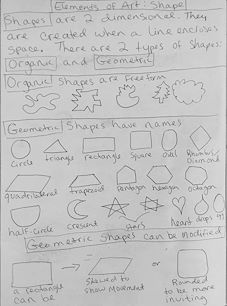 Elements of Art: Shape
Shapes are 2 dimensional. They
are created when a line encloses
space. There are 2 types of Shapes:
Organic and Geometric
Organic Shapes are Freeform
Geometric Shapes have names
Circle triangle rectangle Square oval Rhombus/
Diamond
quadrilateral trapezoid Pentagon hexagon octagon
half-circle crescent Stars heart drops
Geometric Shapes can be Modified
a rectangle
can be
Skewed to
show Movement
or
Rounded
to be more
inviting